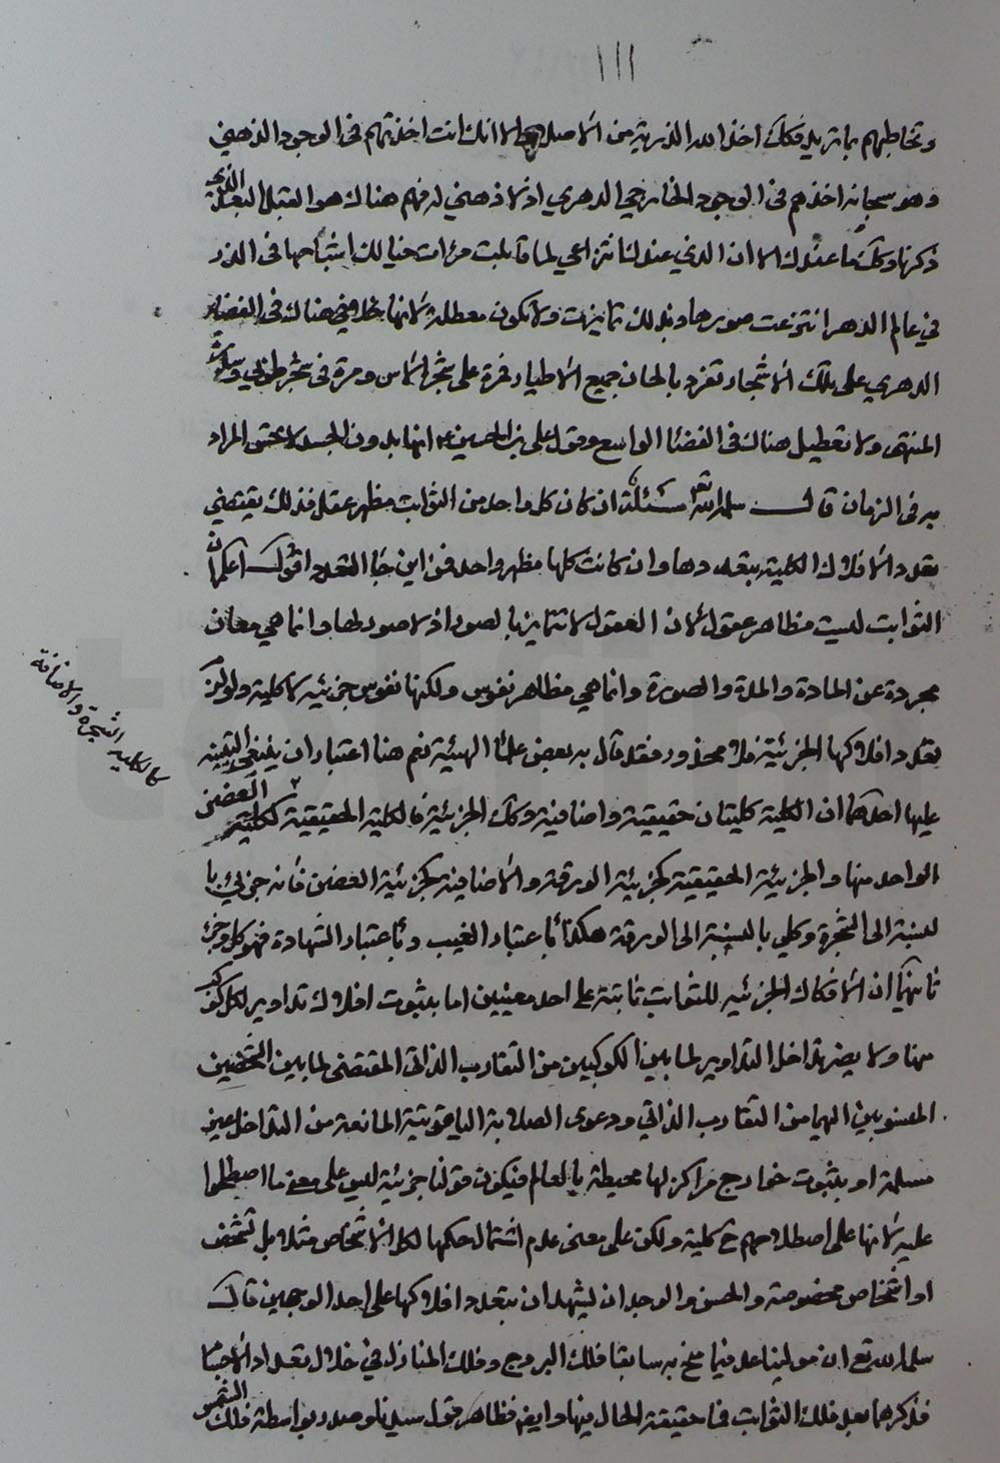 ١١١
وتخاطبهم بما تريد فكذلك اخذ الله الذرية من الاصلاب الا انك انت اخذتهم في الوجود الذهني
وهو سبحانه اخذهم في الوجود الخارجي الدهري اذ لا ذهني له فهم هناك هو القبل البعد الذي
ذكرنا وكذلك ما عندك الا ان الذي عندك انتزاعي لما قابلت مرءات خيالك اشباحها في الذر
في عالم الدهر انتزعت صورها وبذلك تمايزت ولا تكون معطلة لانها هناك في الفضاء
الدهري على تلك الاشجار تغرد بالحان جميع الاطيار فمرة على شجر الاس ومرة في شجر طوبى وسدرة
المنتهى ولا تعطيل هناك في الفضا الواسع وقول علي بن الحسين ع انها بدون الجسد لا تحس المراد
به في الزمان قال سلمه الله تعالى مسئلة ان كان كل واحد من الثوابت مظهر عقل فذلك يقتضي
تعدد الافلاك الكلية بتعددها وان كانت كلها مظهر واحد فمن اين جاء التعدد اقول اعلم ان
الثوابت ليست مظاهر عقول لان العقول لا تتمايز بالصور اذ لا صور لها وانما هي معان
مجردة عن المادة والمدة والصورة وانما هي مظاهر نفوس ولكنها نفوس جزئية لا كلية ولو لزم
تعدد افلاكها الجزئية فلا محذور فقد قال به بعض علماء الهيئة نعم هنا اعتباران ينبغي التنبيه
عليها احدهما ان الكلية كليتان حقيقية واضافية وكذلك الجزئية فالكلية الحقيقية ككلية الغصن
الواحد منها والجزئية الحقيقية كجزئية الورقة والاضافية كجزئية الغصن فانه جزئي با
لنسبة الى الشجرة وكلي بالنسبة الى الورقة هكذا باعتبار الغيب وباعتبار الشهادة فهو كل وجزء
ثانيهما ان الافلاك الجزئية للثوابت ثابتة على احد معنيين اما بثبوت افلاك تداوير لكل كوكب
منها ولا يضر تداخل التداوير لما بين الكوكبين من التقارب الذاتي المقتضي لما بين الشخصين
المنسوبين اليهما من التقارب الذاتي ودعوى الصلابة الياقوتية المانعة من التداخل غير
مسلمة او بثبوت خوارج مراكز لها محيطة بالعالم فيكون قولنا جزئية ليس على معنى ما اصطلحوا
عليه لانها على اصطلاحهم ح كلية ولكن على معنى عدم اشتمال حكمها لكل الاشخاص مثلا بل لشخص
او اشخاص مخصوصة والحس والوجدان ليشهدان بتعدد افلاكها على احد الوجهين قال
سلمه الله تع ان مولينا عد فيما سنح به سابقا فلك البروج وفلك المنازل في خلال تعداد الاجسام
فذكرهما بعد فلك الثوابت فما حقيقة الحال فيها وايضا فظاهر قول سيدنا وصدر بواسطة فلك الشمس
كالكلية الشجرة والاضافة